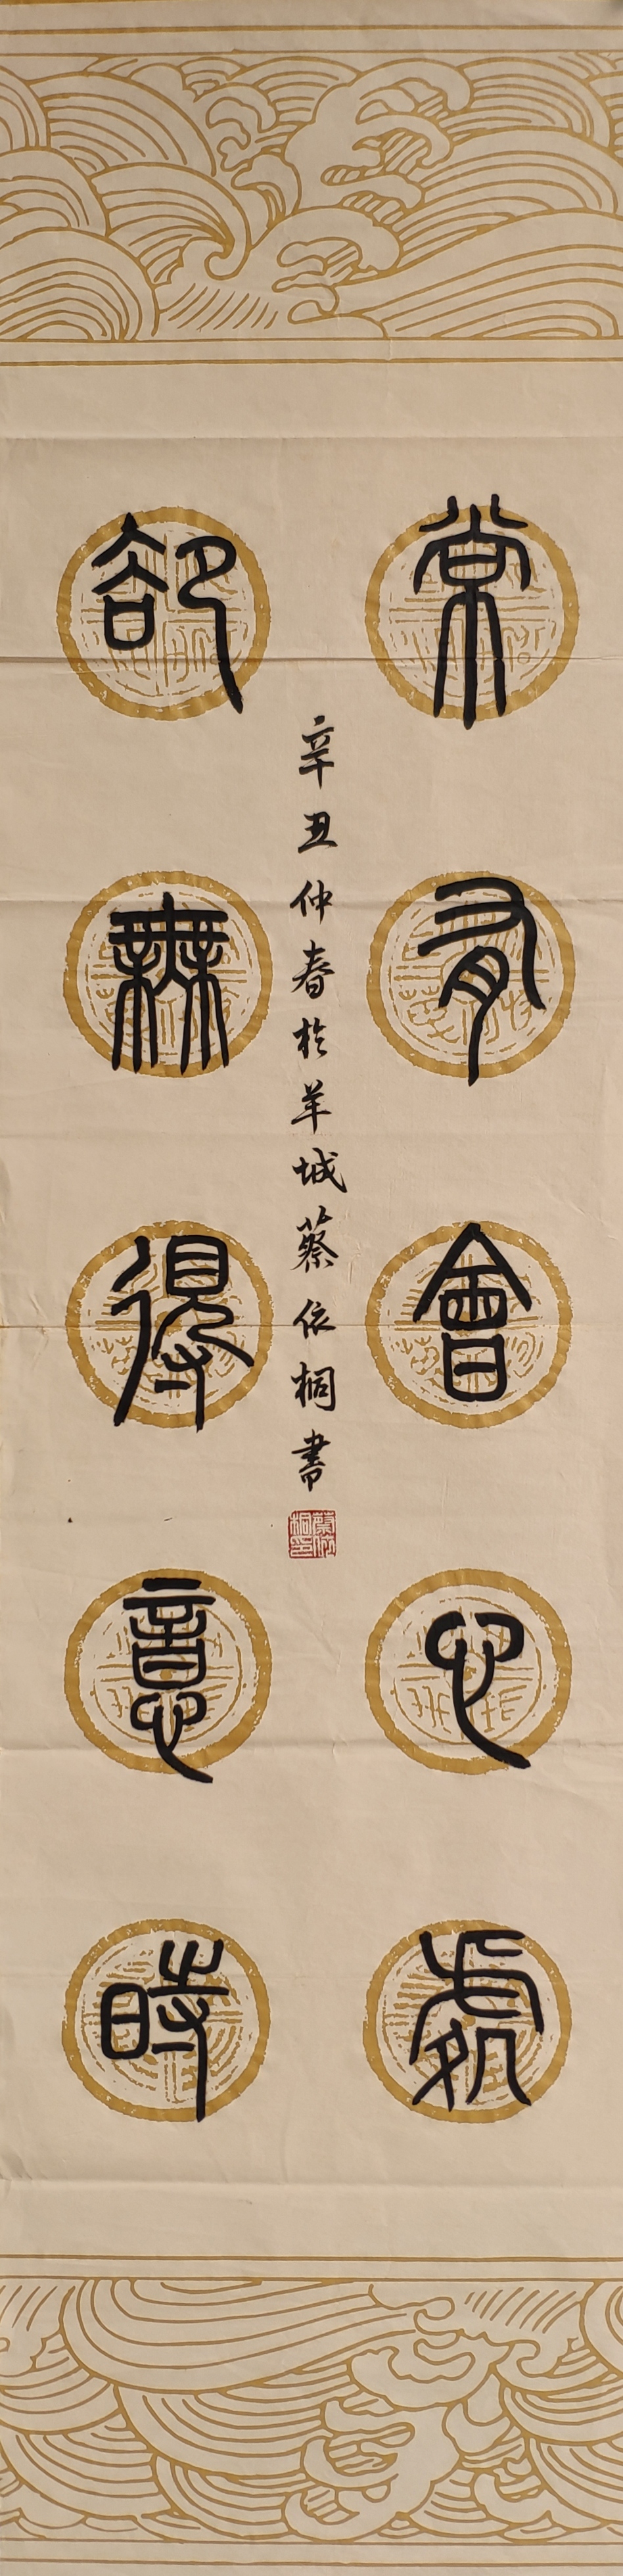 常有會心處
卻無得意時
辛丑仲春於羊城蔡依桐書
蔡依桐印